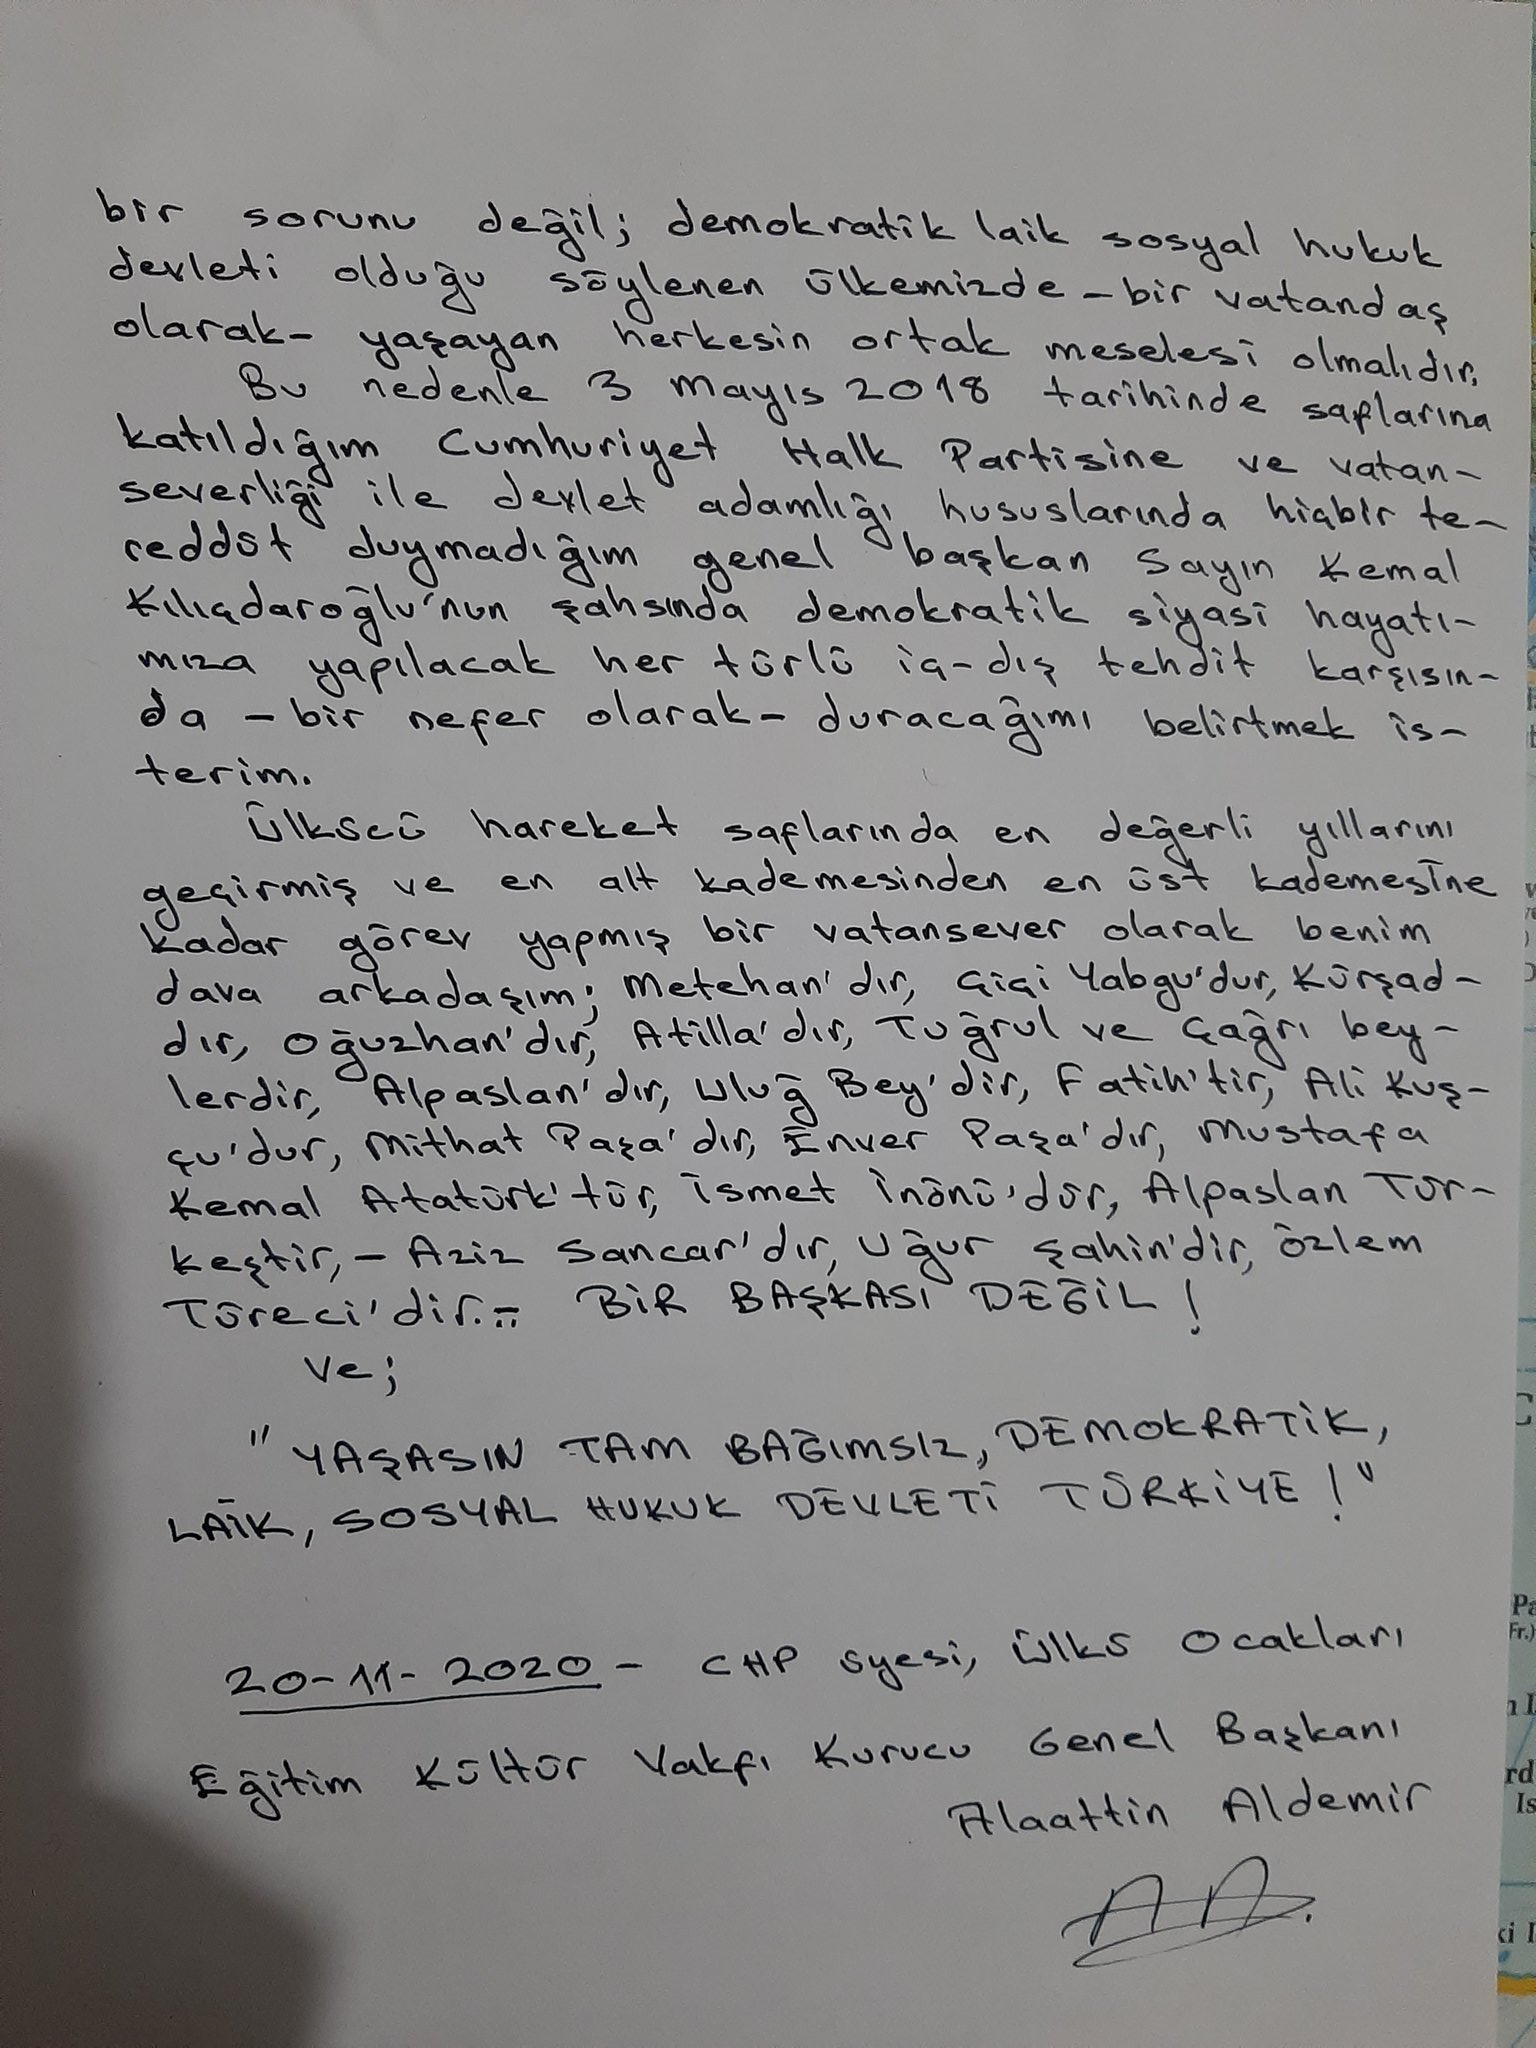 bir sorunu değil; demokratik laik sosyal hukuk
devleti olduğu söylenen ülkemizde - bir vatandaş
olarak - yaşayan herkesin ortak meselesi olmalıdır.
Bu nedenle 3 Mayıs 2018 tarihinde saflarına
katıldığım Cumhuriyet Halk Partisine ve vatan-
severliği ile devlet adamlığı hususlarında hiçbir te-
reddüt duymadığım genel başkan Sayın Kemal
Kılıçdaroğlu'nun şahsında demokratik siyasi hayatı-
mıza yapılacak her türlü iç-dış tehdit karşısın-
da - bir nefer olarak - duracağımı belirtmek is-
terim.
Ülkücü hareket saflarında en değerli yıllarını
geçirmiş ve en alt kademesinden en üst kademesine
kadar görev yapmış bir vatansever olarak benim
dava arkadaşım; Metehan'dır, Çiçi Yabgu'dur, Kürşad-
dır, Oğuzhan'dır, Atilla'dır, Tuğrul ve Çağrı bey-
lerdir, Alpaslan'dır, Uluğ Bey'dir, Fatih'tir, Ali Kuş-
çu'dur, Mithat Paşa'dır, Enver Paşa'dır, Mustafa
Kemal Atatürk'tür, İsmet İnönü'dür, Alpaslan Tür-
keştir, - Aziz Sancar'dır, Uğur Şahin'dir, Özlem
Türeci'dir.- BİR BAŞKASI DEĞİL!
Ve;
"YAŞASIN TAM BAĞIMSIZ, DEMOKRATİK,
LAİK, SOSYAL HUKUK DEVLETİ TÜRKİYE!"
20-11-2020 - CHP üyesi, Ülkü Ocakları
Eğitim Kültür Vakfı Kurucu Genel Başkanı
Alaattin Aldemir